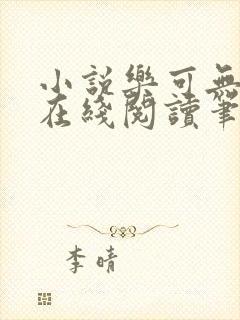 小說樂可無
在綫閱讀筆
李晴